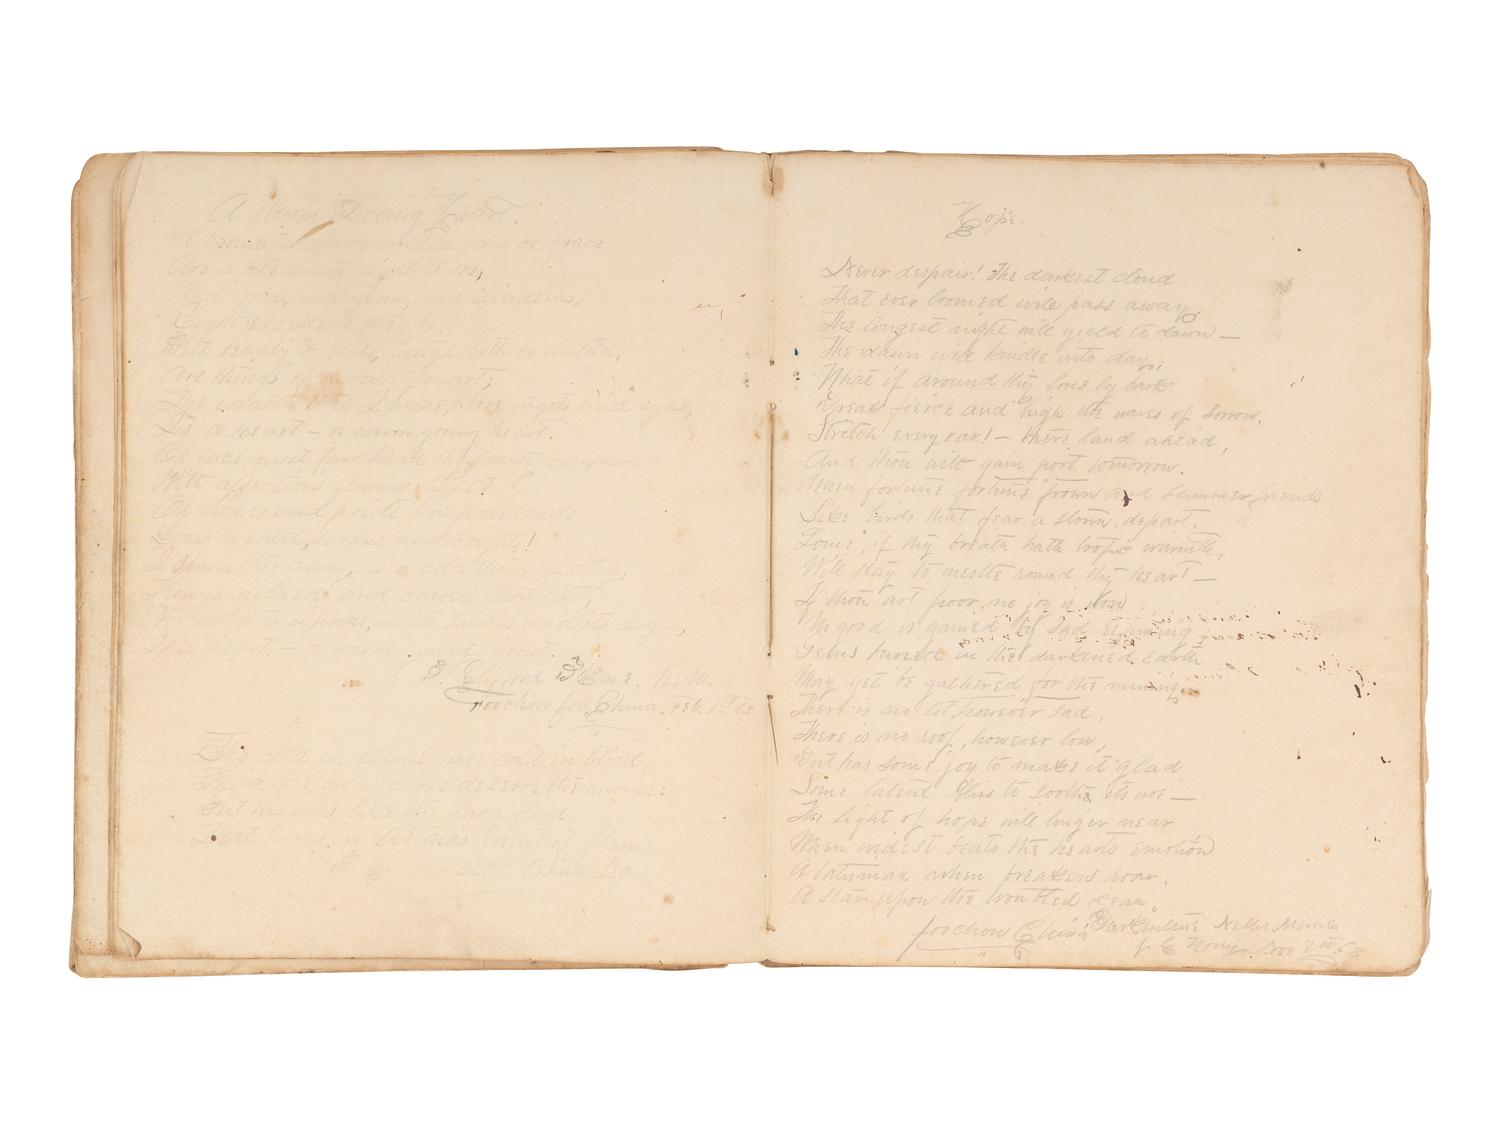 A Warm Loving Heart.
A beautiful and a form of grace
Are a pleasant sight to see,
And gold, and gems, and diadems,
Right excellent be;
But beauty & gold, though both be untold,
Are things of a worldly mart;
The wealth that I prize, above ingots and eyes,
Is a heart – a warm young heart.
Oh face most fair shall thy beauty compare
With affections glowing light?
Oh riches and pride
wealth, serene and bright!
I spurn thee away, as a cold thing of clay,
Though gilded and carved thou art;
For all that I prize, in its smiles and its sighs,
Is a heart – a warm, heart.
Clifford
Foochow foo, China. Feb.
The cold in clime are cold in blood.
Their love can scarce deserve the name:
But his was like the lava flood
That burns in Aetna's breast of flame
China Sea
Hope.
Never despair! The darkest cloud
That ever loomed will pass away,
The longest night will yield to dawn —
The dawn will kindle into day;
What if around thy lone ly bark
Break fierce and high the waves of sorrow,
Stretch every oar! — there land ahead,
And thou wilt gain port tomorrow.
When fortune fortune frown and summer friends
Like birds that fear a storm, depart,
Some, if thy breath hath tropic warmth,
Will stay to nestle round thy heart —
If thou art poor, no joy is
No good is gained by sad repining
Gems buried in the darkened earth
May yet be gathered for the mining
There is no lot, however sad,
There is no roof, however low,
But has some joy to make it glad
Some latent bliss to soothe its woe —
The light of hope will linger near
When wildest beats the hearts emotion
A talisman when breakers roar.
A star upon the troubled ocean.
Foochow China Barkentine